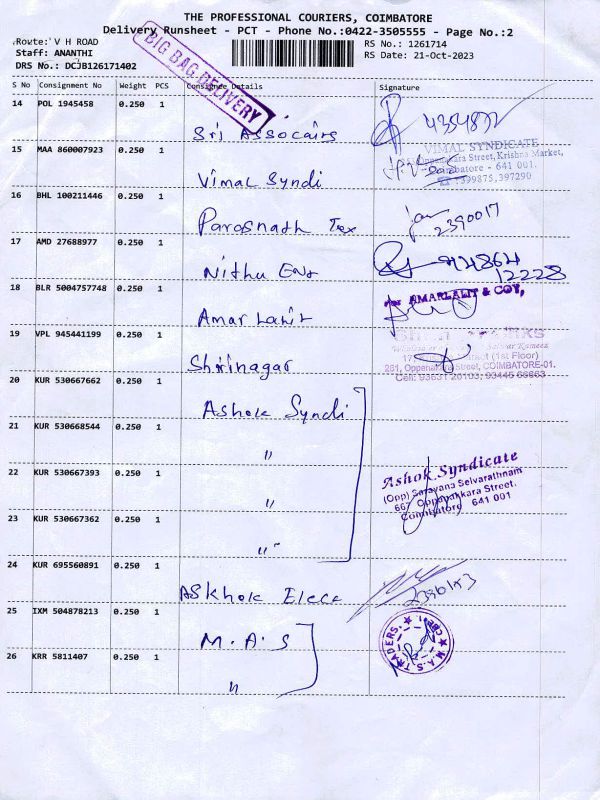 THE PROFESSIONAL COURIERS, COIMBATORE
Delivery Runsheet - PCT - Phone No.:0422-3505555 - Page No.:2
Route: V H ROAD
RS No.: 1261714
Staff: ANANTHI
RS Date: 21-Oct-2023
DRS No.: DCJB126171402
BIG BAG DELIVERY
S No Consignment No Weight PCS Consignee Details Signature
14 POL 1945458 0.250 1
Sri Assocairs
15 MAA 860007923 0.250 1
VIMAL SYNDICATE
Oppanakkara Street, Krishna Market,
Coimbatore - 641 001.
399875,397290
Vimal Syndi
16 BHL 100211446 0.250 1
Parosnath Tex 2390017
17 AMD 27688977 0.250 1
Nithu Ent 94864
12228
18 BLR 5004757748 0.250 1
for AMARLALIT & COY,
Amar Lalit
19 VPL 945441199 0.250 1
(1st Floor)
281, Oppanakara Street, COIMBATORE-01.
Shrinagar
20 KUR 530667662 0.250 1
Ashok Syndi
21 KUR 530668544 0.250 1
"
22 KUR 530667393 0.250 1
Ashok Syndicate
(Opp) Saravana Selvarathnam
667 Oppanakkara Street.
Coimbatore 641 001
"
23 KUR 530667362 0.250 1
"
24 KUR 695560891 0.250 1
Askhok Elece
25 IXM 504878213 0.250 1
M.A.S
M.A.S TRADERS
26 KRR 5811407 0.250 1
"